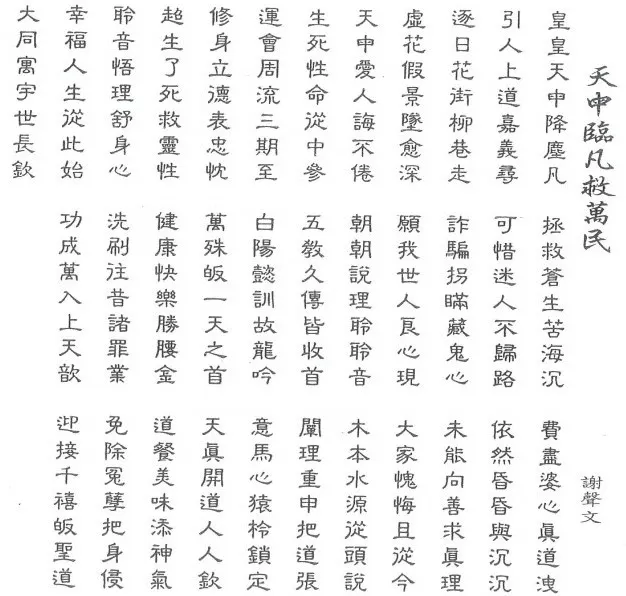 天中臨凡救萬民
謝聲文
皇皇天中降塵凡 拯救蒼生苦海沉 費盡婆心眞道洩
引人上道嘉義尋 可惜迷人不歸路 依然昏昏與沉沉
逐日花街柳巷走 詐騙拐瞞藏鬼心 未能向善求眞理
虛花假景墜愈深 願我世人良心現 大家愧悔且從今
天中愛人誨不倦 朝朝說理聆聆音 木本水源從頭說
生死性命從中參 五教久傳皆收首 闡理重申把道張
運會周流三期至 白陽懿訓故龍吟 意馬心猿柃鎖定
修身立德表忠忱 萬殊皈一天之首 天眞開道人人欽
超生了死救靈性 健康快樂勝腰金 道餐美味添神氣
聆音悟理舒身心 洗刷往昔諸罪業 免除冤孽把身侵
幸福人生從此始 功成萬入上天歆 迎接千禧皈聖道
大同寓宇世長欽